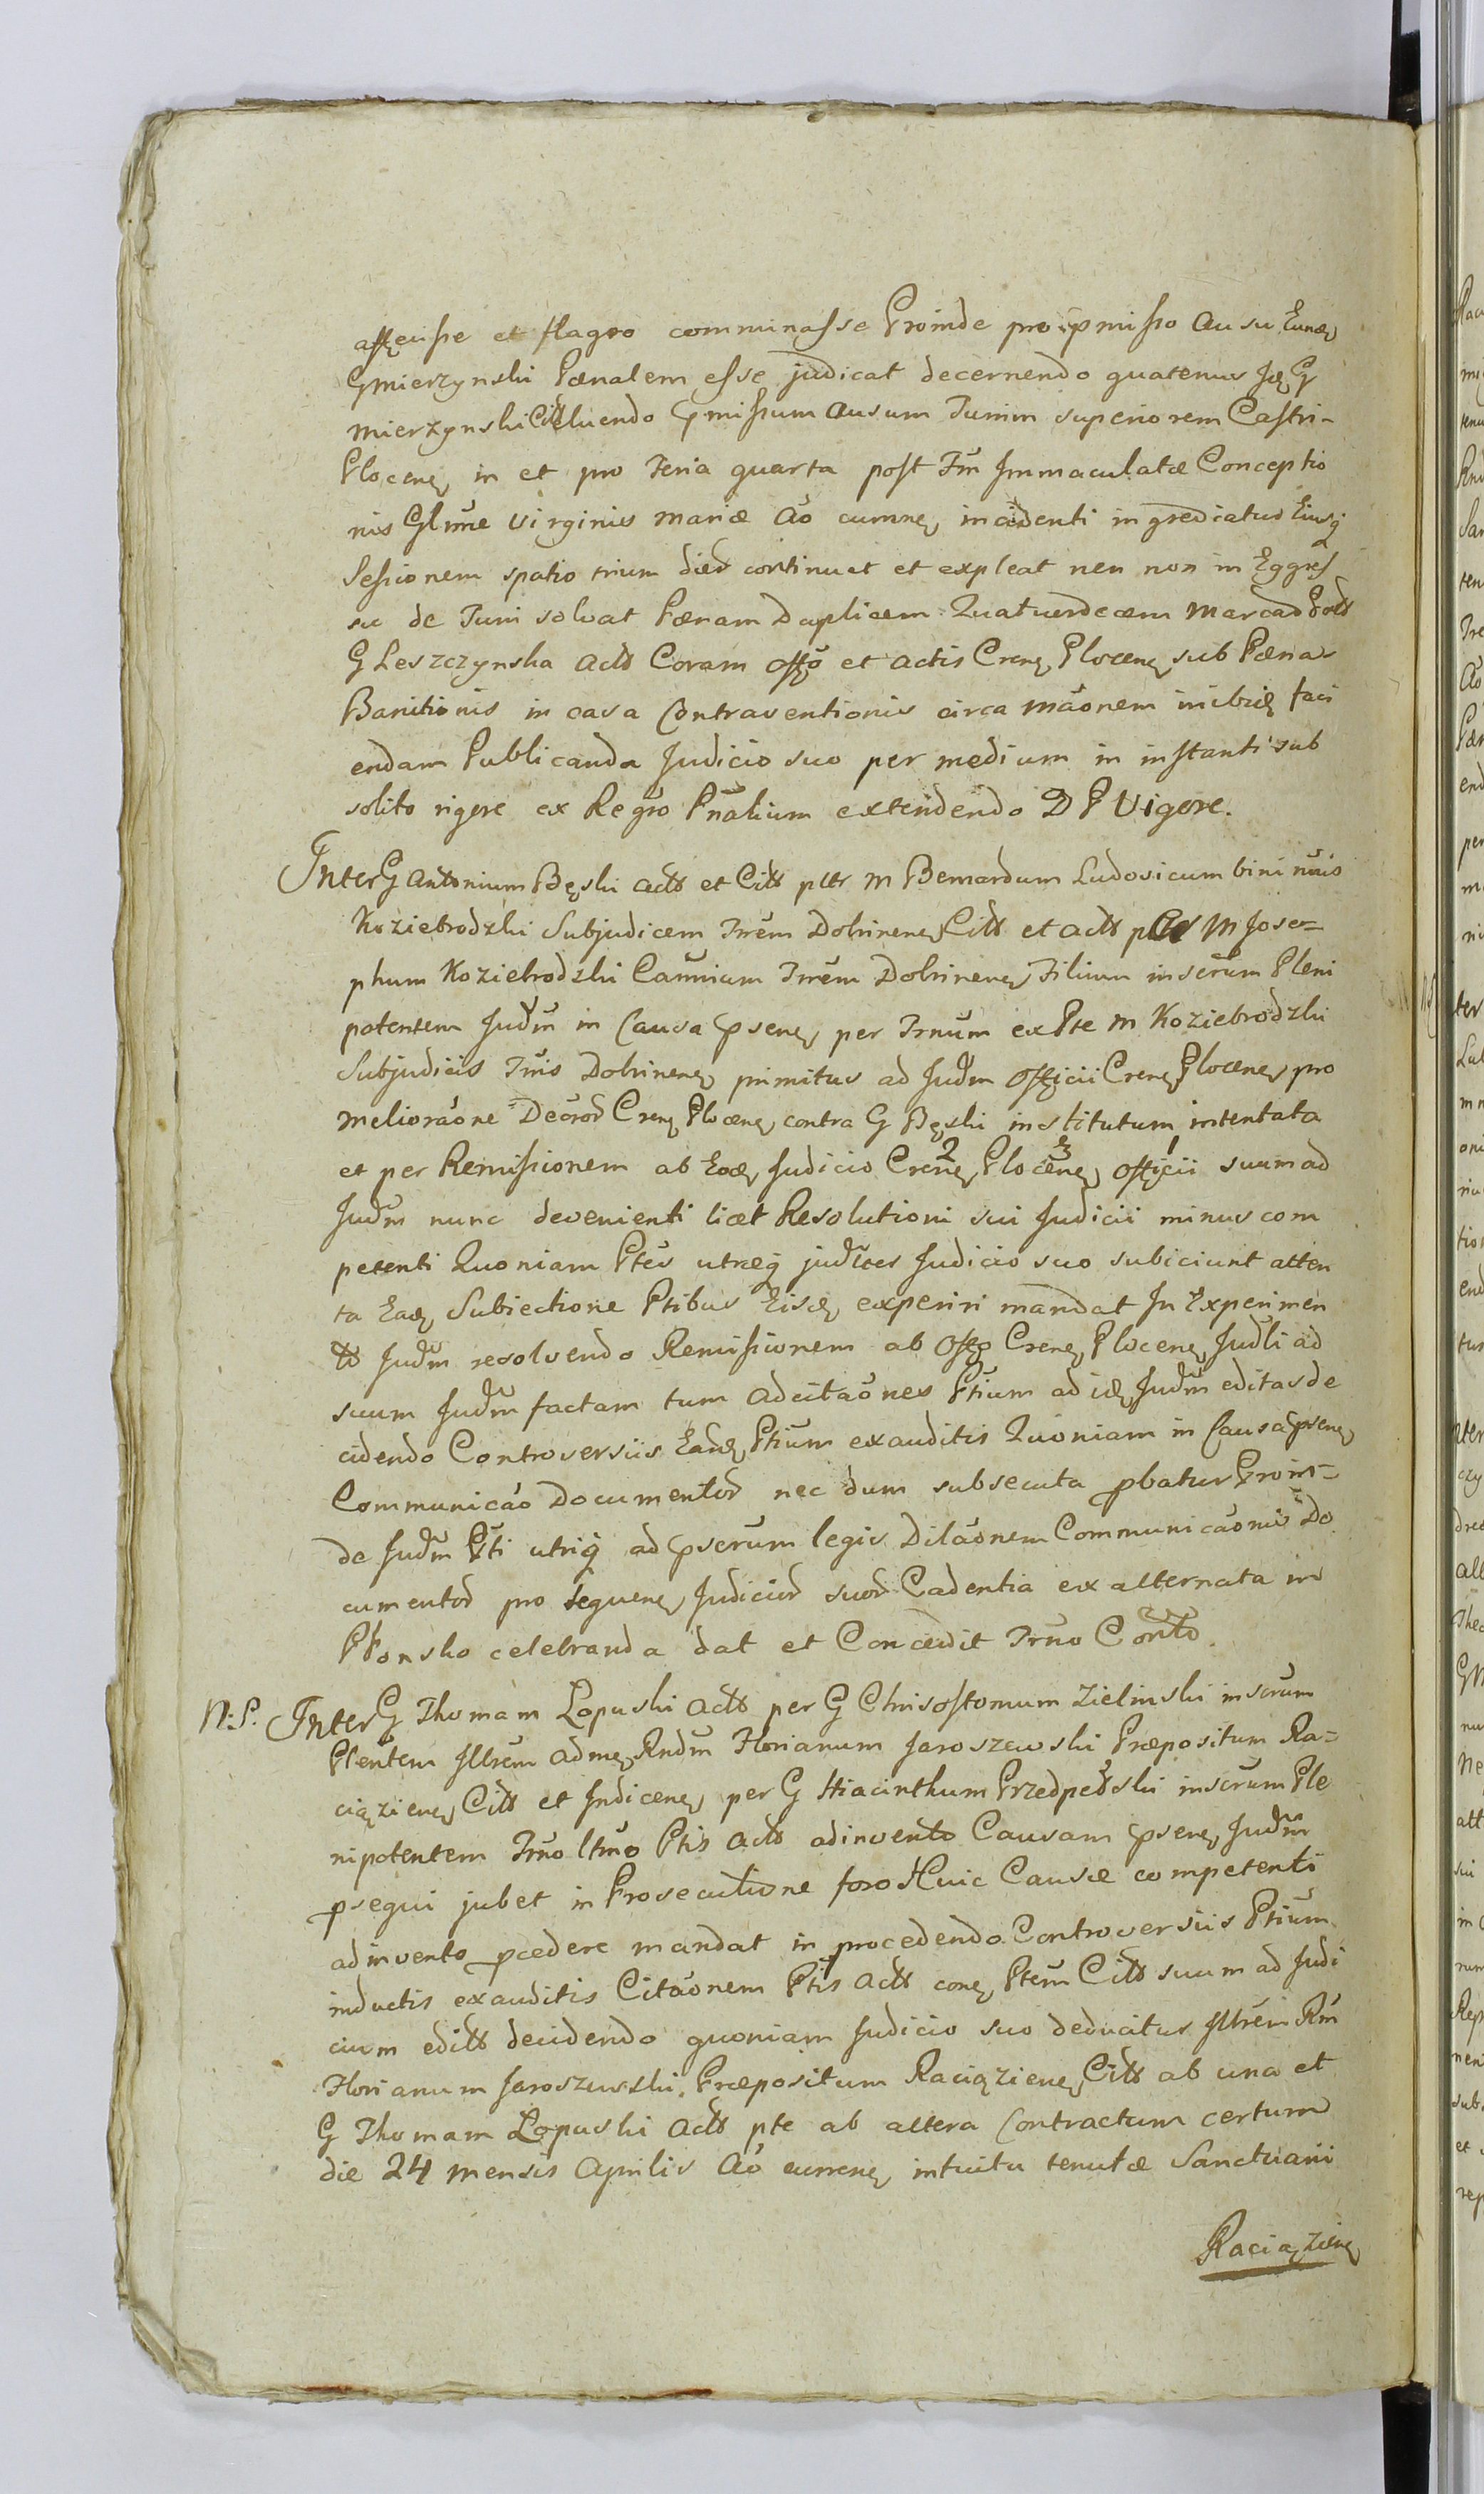 affecisse et flagro comminasse Proinde pro pmisso ausu Eund
G Mierzynski Pænalem esse judicat decernendo quatenus Id G
Mierzynski Citt luendo pmissum ausum Turrim superiorem Castri-
Plocens in et pro Feria quarta post Fm Immaculatæ Conceptio
nis Glmæ Virginis Mariæ Ao currne, incidenti ingrediatur Eiusq
Sessionem spatio trium dier continuet et expleat nen non in Eggres
su de Turri solvat Pænam Duplicem Quatuordecem Marcar
G Leszczynska Actt Coram Offo et Actis Crens Plocens sub Pæna
Banitionis in casa Contraventionis circa
endam Publicanda Judicio suo per medium in instanti sub
solito rigore ex Regro Pnalium extendendo D P Vigore.
Inter G Antonium Bęski Actt et Citt pltr M Bernardum Ludovicum bini nnis
Koziebrodzki Subjudicem Trrem Dobrinens Citt et Actt M Jose=
phum Koziebrodzki Camrium Trrem Dobrinens Filium inscrum Pleni
potentem Judm in Causa psens per Trnum ex Pte M Koziebrodzki
Subjudicis Trris Dobrinens primitus ad Judm Officii Crens Plocens pro
melioraone Decror Crens Plocens contra G Bęski institutum intentata
et per Remissionem ab Eod Judicio Crens 2 Plocens 3 Officii 1 suum ad
Judm nunc devenienti licet Resolutioni sui Judicii minus com
petenti Quoniam Ptes utræq judlter Judicio suo subiciunt atten
ta Ead Subiectione Ptibus Eisd experiri mandat In Experimen
to Judm resolvendo Remissionem ab Offo Crens Plocens Judli ad
suum Judm factam tum Adcitaones Ptium ad id Judm editas de
cidendo Controversiis Eard Ptium exauditis Quoniam in Causa psens
Communicao Documentor nec dum subsecuta pbatur Proin=
de Judm Pti utriq ad pscrum legis Dilaonem Communicaonis Do
cumentor pro sequens Judicior suor Cadentia ex alternata in
Płonsko celebranda dat et Concedit Trno Conto.
N: S. Inter G Thomam Łopuski Actt per G Chrisostomum Zielinski inscrum
Plentem Illrem Adme Rndm Florianum Jaroszewski Præpositum Ra=
ciąziens Citt et Indicens per G Hiacinthum Przedpełski inscrum Ple
nipotentem Trno ltmo Ptis Actt adinvento Causam psens Judm
psequi jubet in Prosecutione foro Huic Causæ competenti
adinvento pcedere mandat in procedendo Controversiis Ptium
inductis exauditis Citaonem Ptis Actt cone Ptem Citt suum ad Judi
cium editt decidendo quoniam Judicio suo deducitur Illrem Rm
Florianum Jaroszewski Præpositum Raciąziens Citt ab una et
G Thomam Łopuski Actt pte ab altera Contractum certum
die 24 Mensis Aprilis Ao currens intuitu tenutæ Sanctuarii
Raciąziens